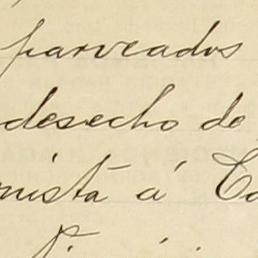 parveados
desecho de
mista á Ca